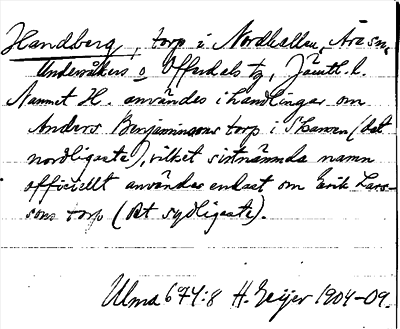 Handberg, torp i Nordhallen, Åre sn,
Undersåkers o Offerdals tg, Jämtl. l.
Namnet H. användes i handlingar om
Anders Benjaminsons torp i Skarven (det
nordligaste), vilket sistnämnda namn
officiellt användes endast om Erik Lars-
sons torp (det sydligaste).
Ulma 674:8 H. Geijer 1904-09.